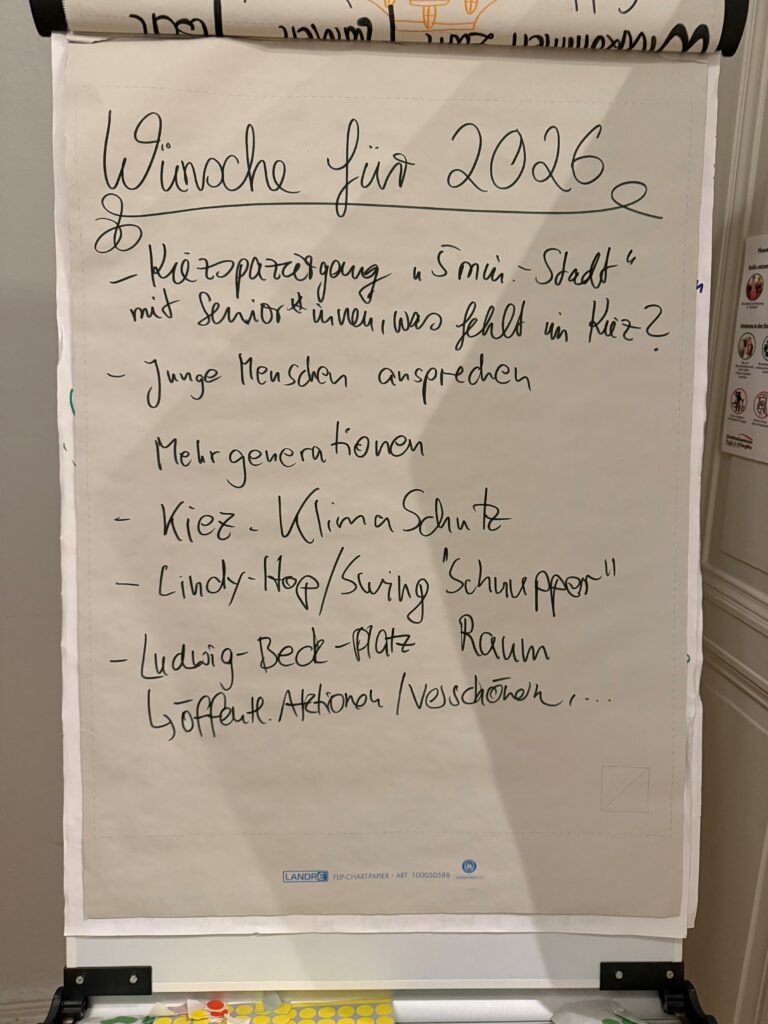 Wünsche für 2026
- Kiezspaziergang „5 min.-Stadt"
mit Senior*innen, was fehlt im Kiez?
- Junge Menschen ansprechen
Mehrgenerationen
- Kiez-KlimaSchutz
- Lindy-Hop/Swing "Schnupper"
- Ludwig-Beck-Platz Raum
↳ öffentl. Aktionen/Verschönern, ...
LANDRÉ FLIP-CHART-PAPIER • ART. 100050588